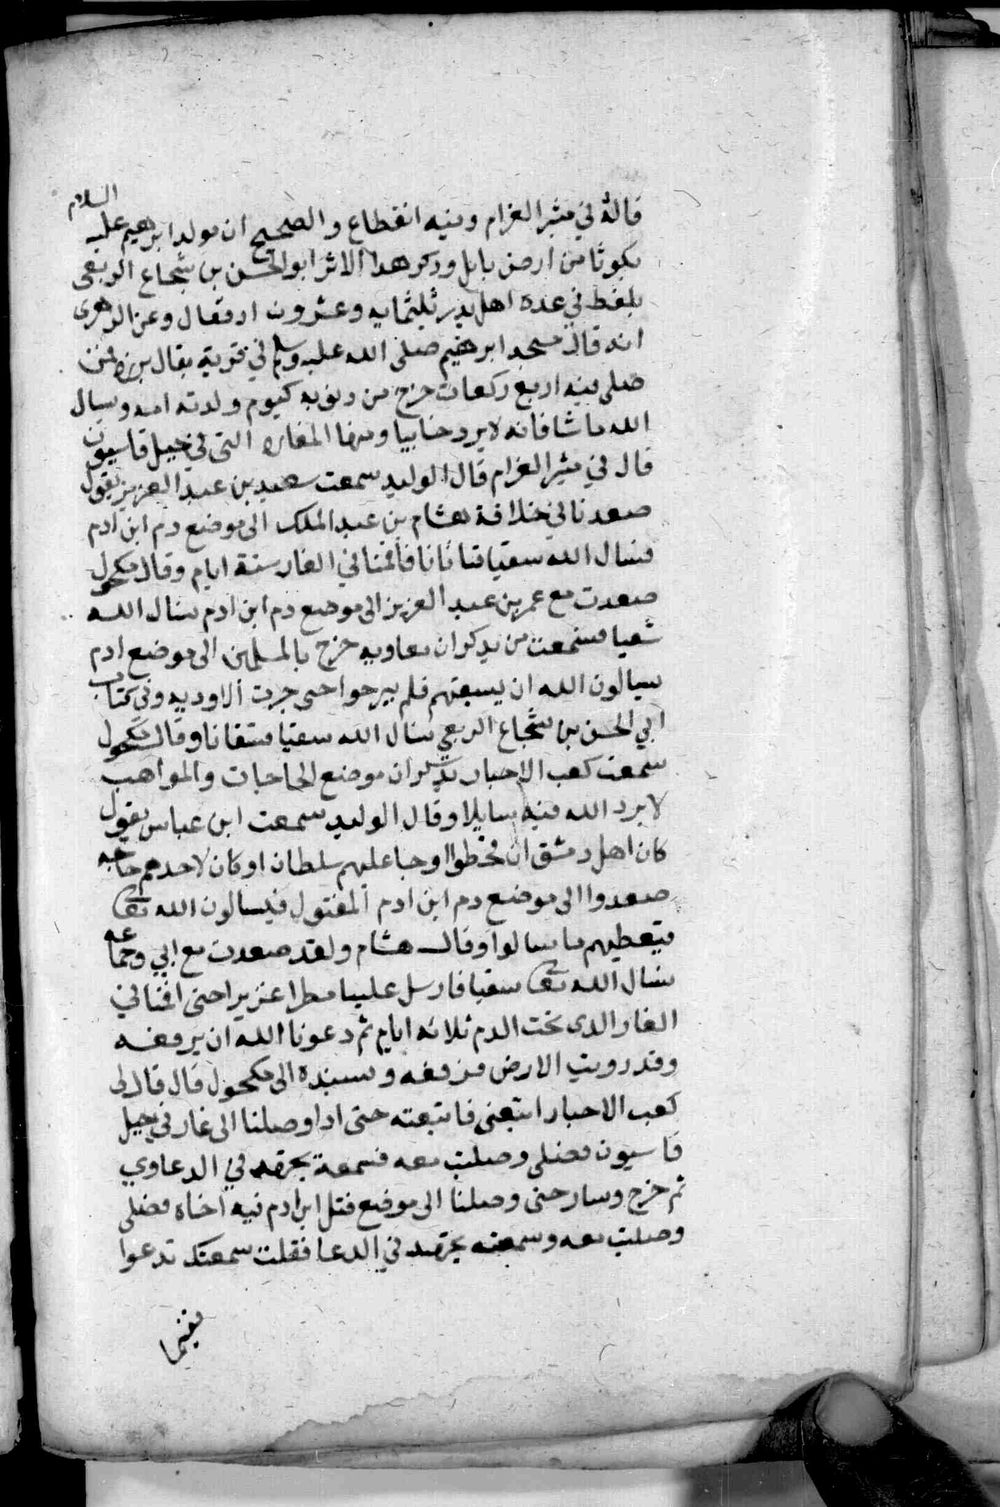 قاله في مثير الغرام وفيه انقطاع والصحيح ان مولد ابرهيم عليه السلام
بكوثا من ارض بابل وذكر هدا الاثر ابو الحسن بن شجاع الربعي
بلفظ في عدة اهل بدر ثلثمايه وعشرون اد فقال وعن الزهري
انه قال مسجد ابرهيم صلى الله عليه وسلم في قرية يقال برزه فمن
صلى فيه اربع ركعات خرج من دنوبه كيوم ولدته امه وسال
الله ما شا فانه لا يرد خايبا ومنها المغاره التي في جبل قاسيون
قال في مثير الغرام قال الوليد سمعت سعيد بن عبد العزيز يقول
صعدنا في خلافة هشام بن عبد الملك الى موضع دم ابن ادم
فنسال الله سقيا فاتانا فاقمنا في الغار ستة ايام وقال مكحول
صعدت مع عمر بن عبد العزيز الى موضع دم ابن ادم نسال الله
سقيا فسمعت من يدكر ان معاويه خرج بالمسلمين الى موضع ادم
يسالون الله ان يسقيهم فلم يبرحوا حتى جرت الاوديه وفي كتاب
ابي الحسن بن شجاع الربعي نسال الله سقيا فسقانا وقال مكحول
سمعت كعب الاحبار يدكر ان موضع الحاجات والمواهب
لا يرد الله فيه سايلا وقال الوليد سمعت ابن عباس يقول
كان اهل دمشق ان قحطوا او جا عليهم سلطان او كان لاحدهم حاجه
صعدوا الى موضع دم ابن ادم المقتول فيسالون الله تعالى
فيعطيهم ما سالوا وقال هشام ولقد صعدت مع ابي وجماعه
نسال الله تعالى سقيا فارسل علينا مطرا غزيرا حتى اقمنا في
الغار الدى تحت الدم ثلاثه ايام ثم دعونا الله ان يرفعه
وقد رويت الارض فرفعه وبسنده الى مكحول قال قال لي
كعب الاحبار اتبعني فاتبعته حتى ادا وصلنا الى غار في جبل
قاسيون فصلى وصليت معه فسمعته يجتهد في الدعا وي
ثم خرج وسار حتى وصلنا الى موضع قتل ابن ادم فيه اخاه فصلى
وصليت معه وسمعته يجتهد في الدعا فقلت سمعتك تدعوا